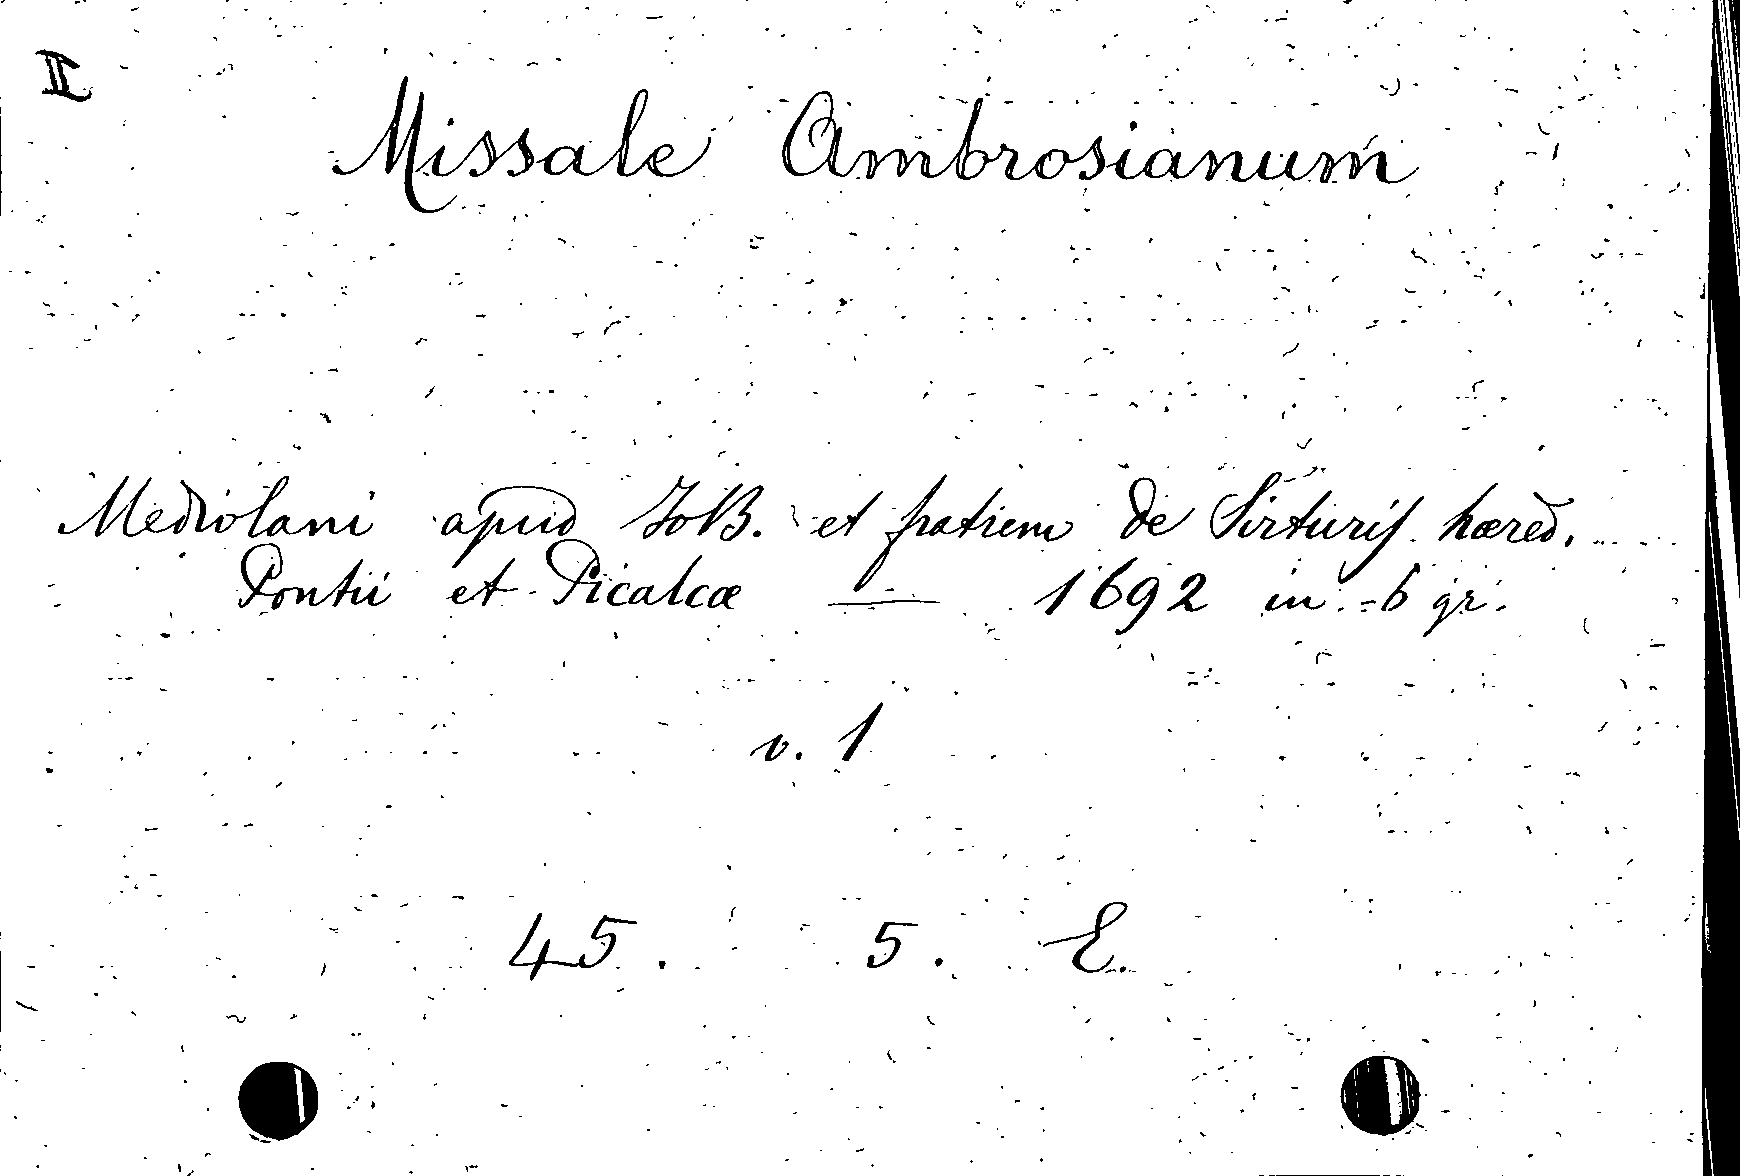 II
Missale Ambrosianum
Mediolani apud JoB. et fratrem de Sirturis hæred.
Pontii et Picalcæ — 1692 in-6 gr.
v. 1
45. 5. E.